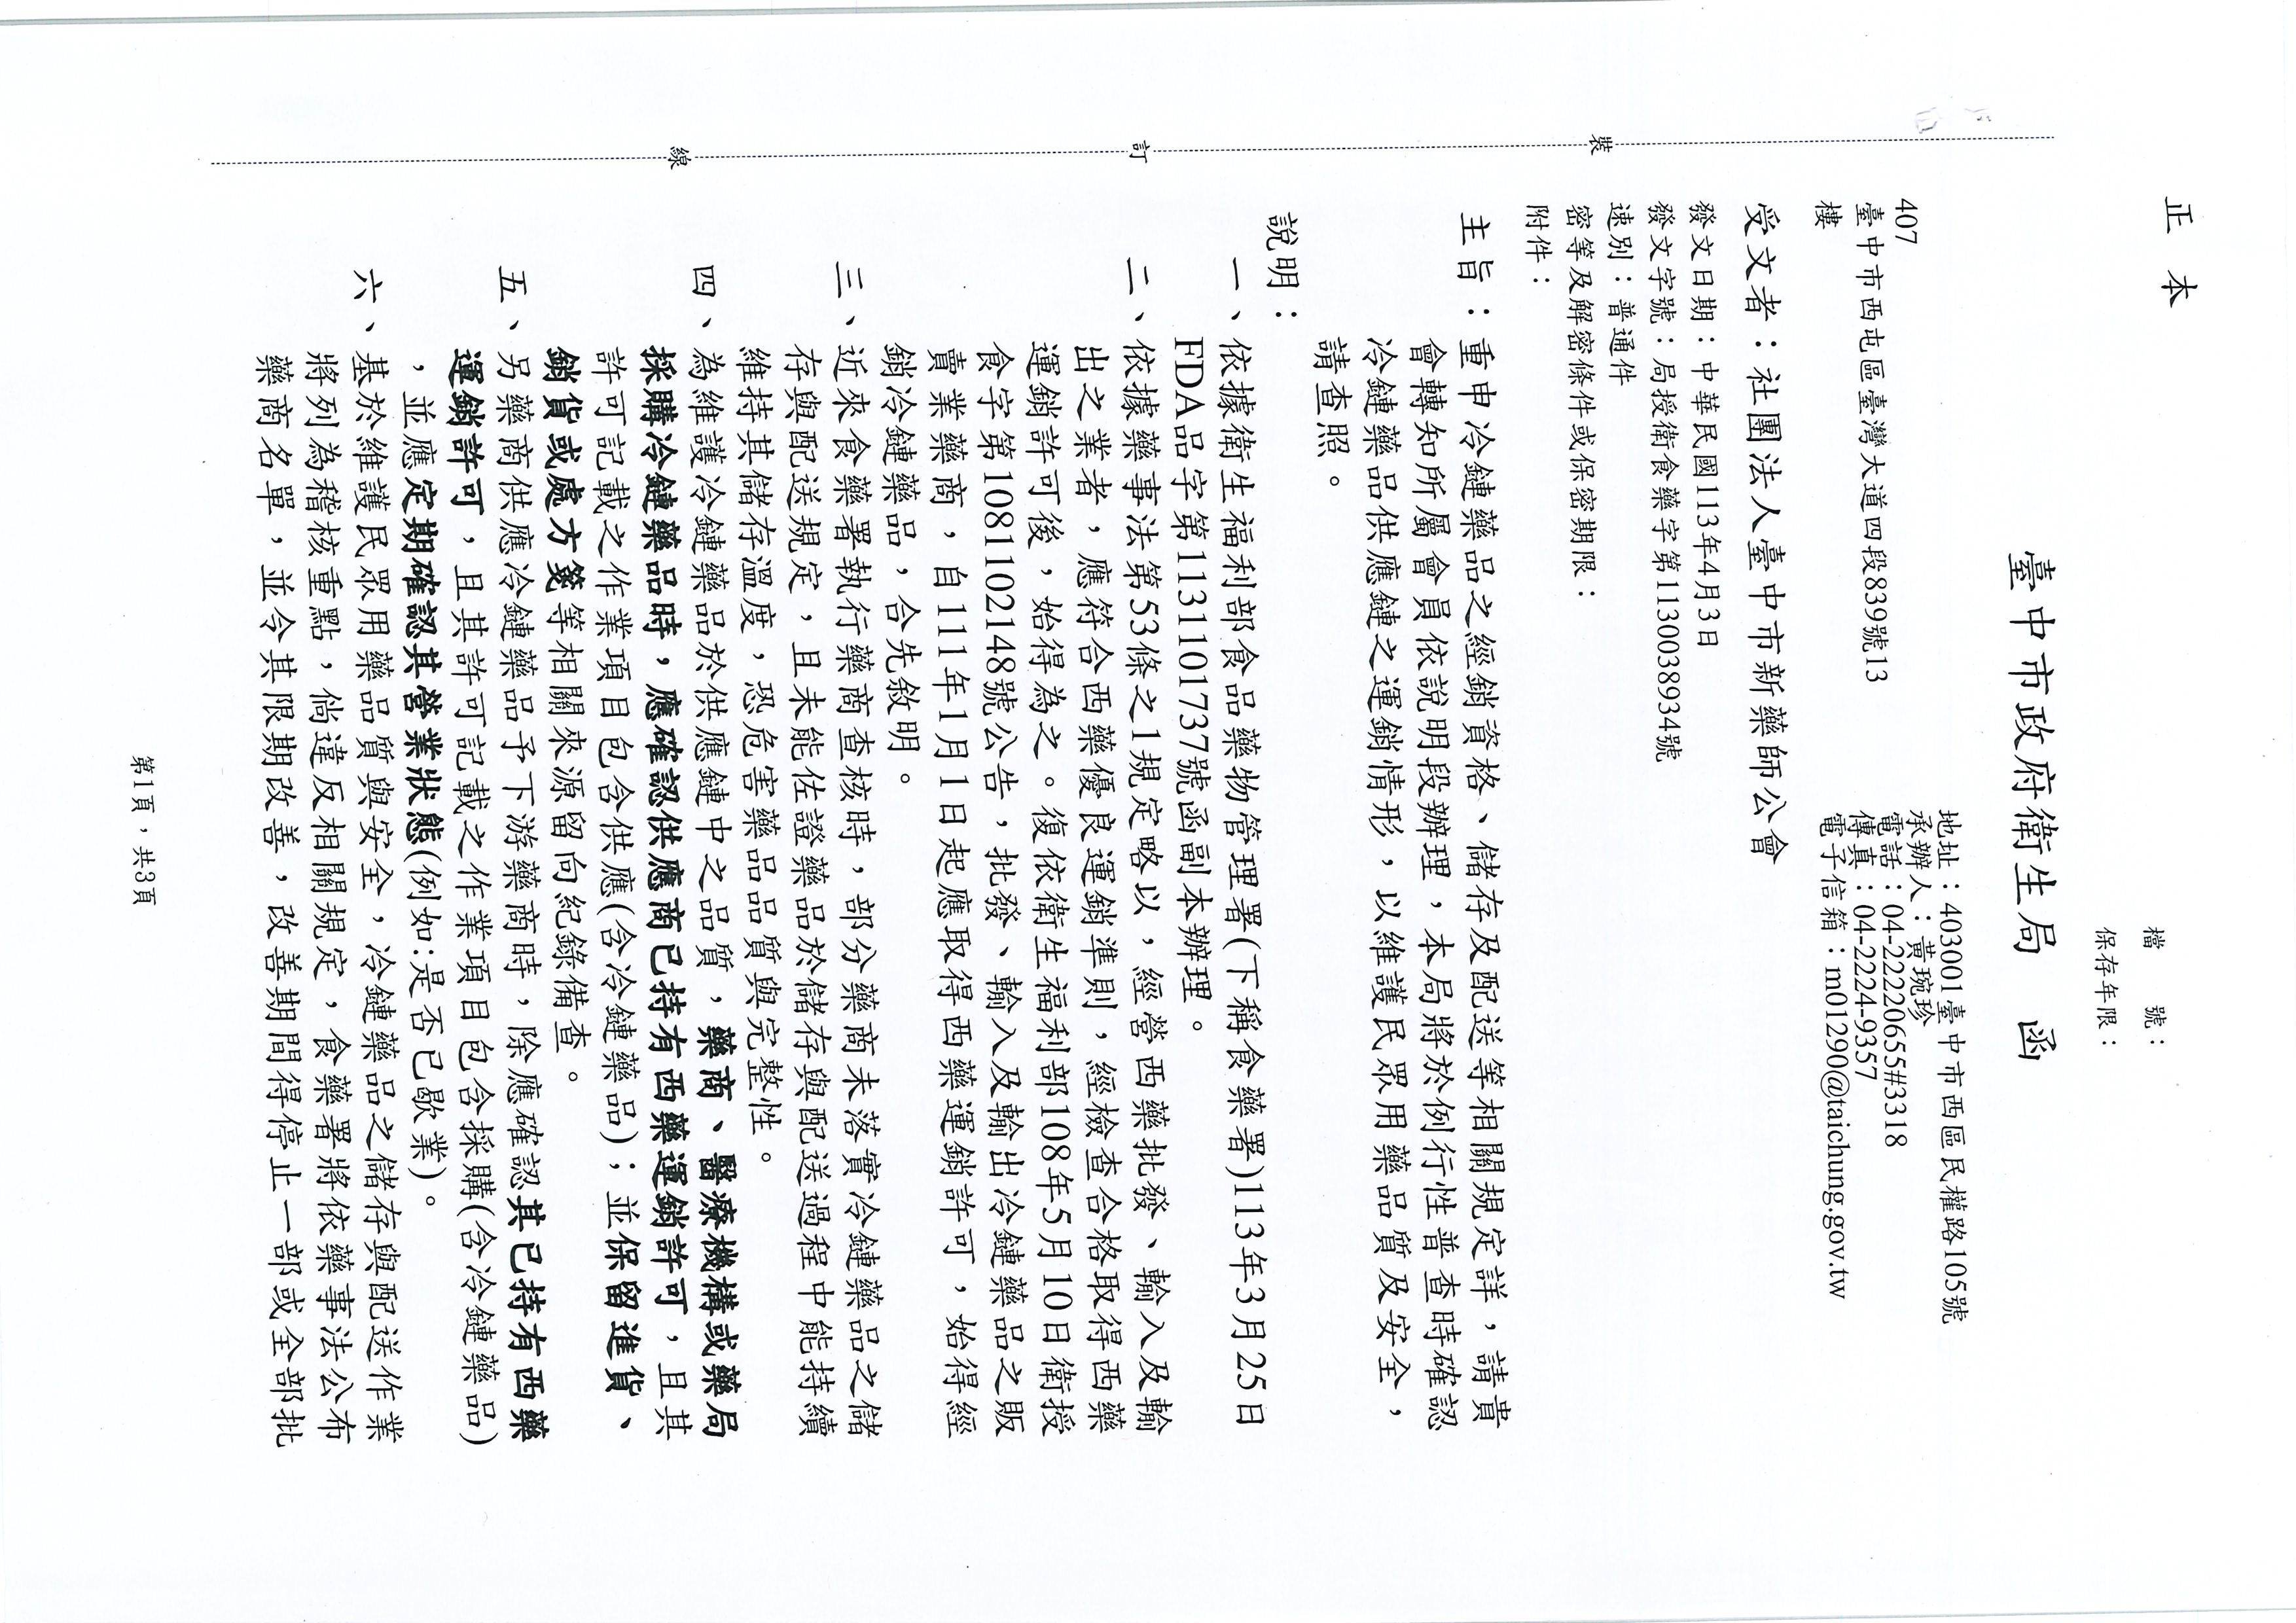 正本
檔　　號：
保存年限：
臺中市政府衛生局　函
地址：403001臺中市西區民權路105號
承辦人：黃琬珍
電話：04-22220655#3318
傳真：04-2224-9357
電子信箱：m01290@taichung.gov.tw
407
臺中市西屯區臺灣大道四段839號13
樓
受文者：社團法人臺中市新藥師公會
發文日期：中華民國113年4月3日
發文字號：局授衛食藥字第1130038934號
速別：普通件
密等及解密條件或保密期限：
附件：
主旨：重申冷鏈藥品之經銷資格、儲存及配送等相關規定詳，請貴
會轉知所屬會員依說明段辦理，本局將於例行性普查時確認
冷鏈藥品供應鏈之運銷情形，以維護民眾用藥品質及安全，
請查照。
說明：
一、依據衛生福利部食品藥物管理署(下稱食藥署)113年3月25日
FDA品字第1131101737號函副本辦理。
二、依據藥事法第53條之1規定略以，經營西藥批發、輸入及輸
出之業者，應符合西藥優良運銷準則，經檢查合格取得西藥
運銷許可後，始得為之。復依衛生福利部108年5月10日衛授
食字第1081102148號公告，批發、輸入及輸出冷鏈藥品之販
賣業藥商，自111年1月1日起應取得西藥運銷許可，始得經
銷冷鏈藥品，合先敘明。
三、近來食藥署執行藥商查核時，部分藥商未落實冷鏈藥品之儲
存與配送規定，且未能佐證藥品於儲存與配送過程中能持續
維持其儲存溫度，恐危害藥品品質與完整性。
四、為維護冷鏈藥品於供應鏈中之品質，藥商、醫療機構或藥局
採購冷鏈藥品時，應確認供應商已持有西藥運銷許可，且其
許可記載之作業項目包含供應(含冷鏈藥品)；並保留進貨、
銷貨或處方箋等相關來源留向紀錄備查。
五、另藥商供應冷鏈藥品予下游藥商時，除應確認其已持有西藥
運銷許可，且其許可記載之作業項目包含採購(含冷鏈藥品)
，並應定期確認其營業狀態(例如:是否已歇業)。
六、基於維護民眾用藥品質與安全，冷鏈藥品之儲存與配送作業
將列為稽核重點，倘違反相關規定，食藥署將依藥事法公布
藥商名單，並令其限期改善，改善期間得停止一部或全部批
第1頁，共3頁
裝
訂
線